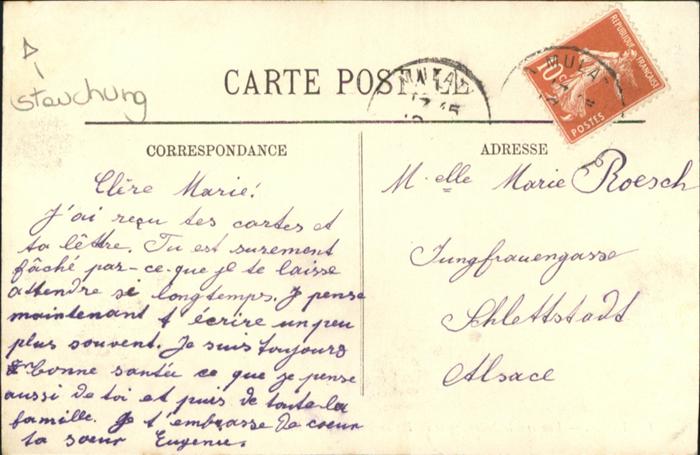 stauchung
CARTE POSTALE
MULA
17 45
MULA
RÉPUBLIQUE FRANÇAISE
10c
POSTES
CORRESPONDANCE
Chère Marie!
J'ai reçu tes cartes et
ta lêttre. Tu est surement
fâché par-ce-que je te laisse
attendre si longtemps. Je pense
maintenant t'écrire un peu
plus souvent. Je suis toujours
en bonne santée ce que je pense
aussi de toi et puis de toute la
famille. Je t'embrasse de coeur
ta soeur Eugenie.
ADRESSE
M. elle Marie Roesch
Jungfrauengasse
Schlettstadt
Alsace